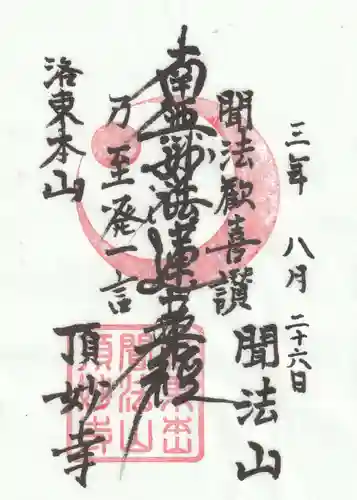 三年 八月 二十六日
聞法歓喜讃
聞法山
南無妙法蓮華経
乃至発一言
頂妙寺
洛東本山